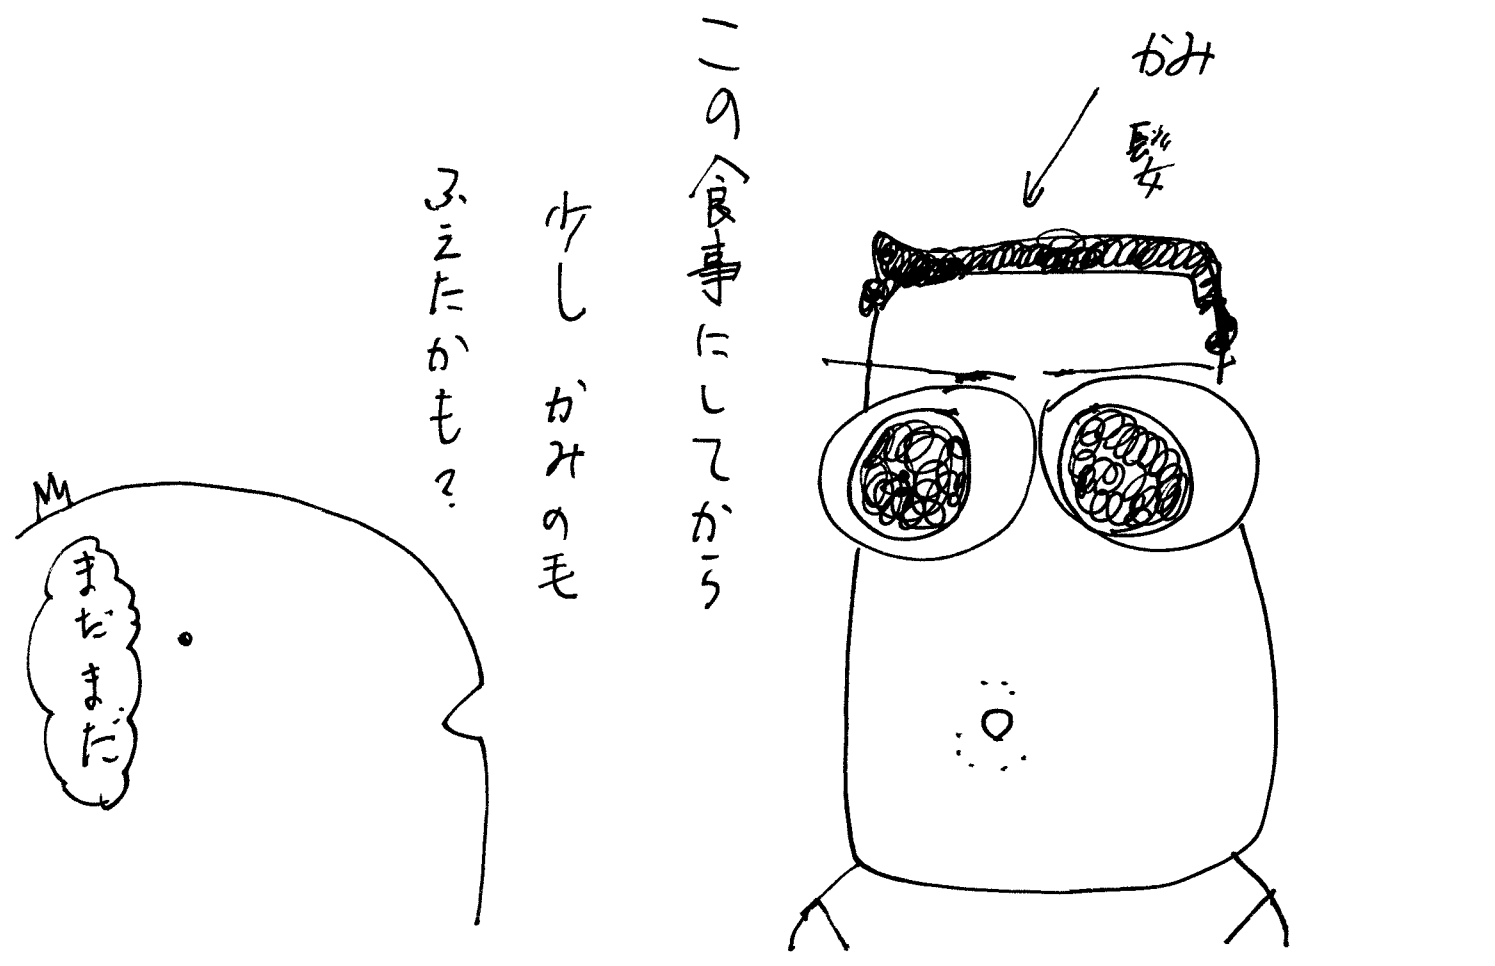 かみ
髪
この食事にしてから
少し かみの毛
ふえたかも?
まだまだ